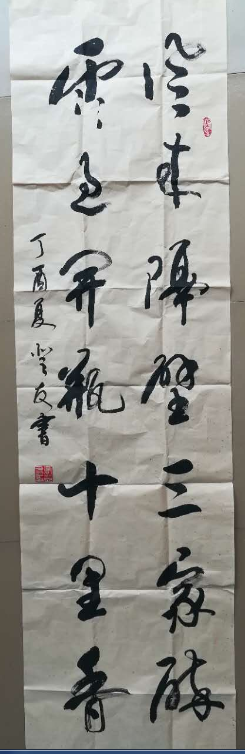 風來隔壁三家醉
雨過開瓶十里香
丁酉夏登友書